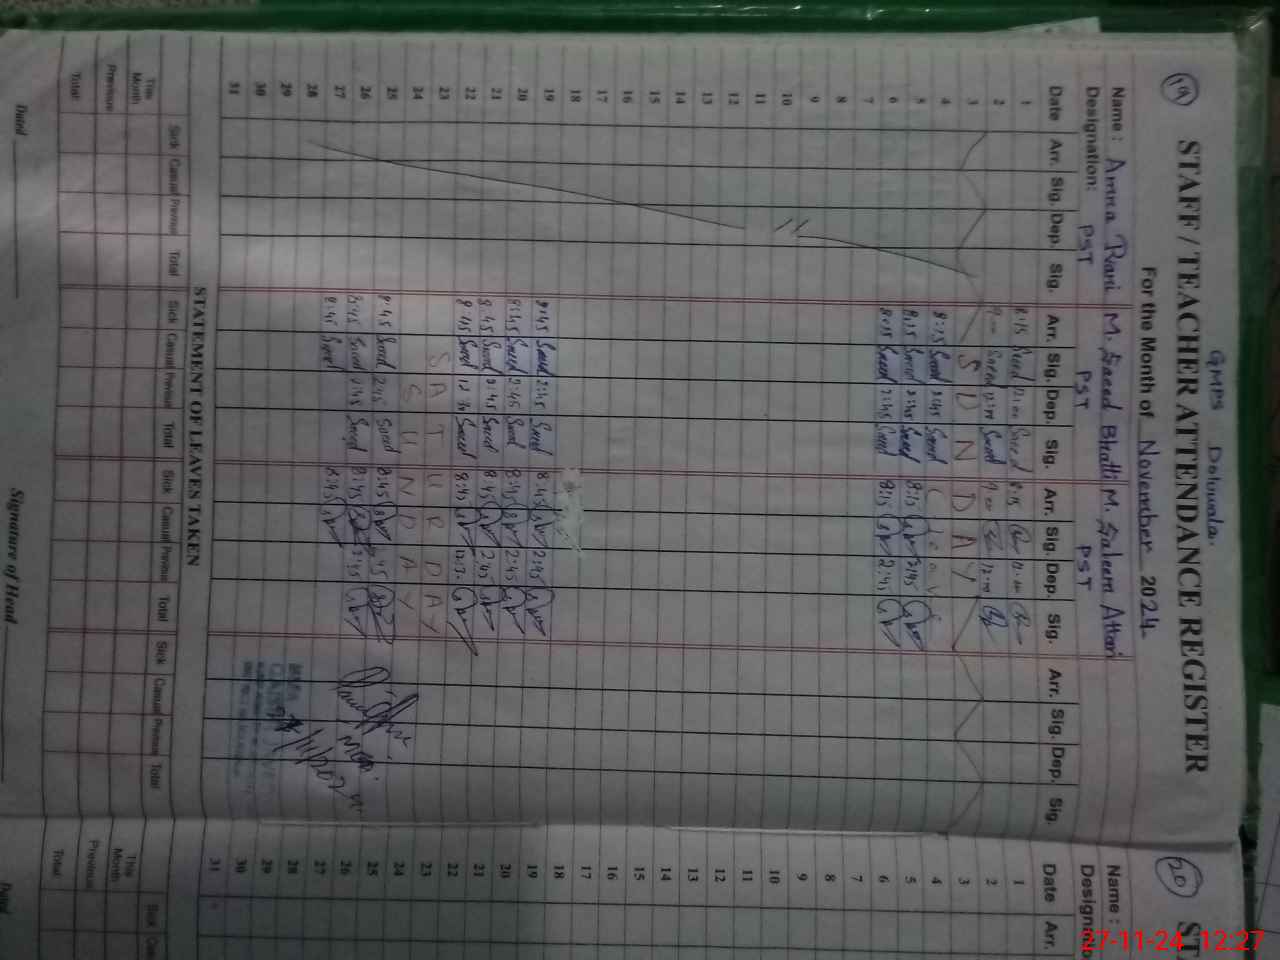 19
GMPS Doluwala.
STAFF / TEACHER ATTENDANCE REGISTER
For the Month of November 2024
Name : Amna Rani M. Saeed Bhatti M. Saleem Attari
Designation: PST PST PST
Date Arr. Sig. Dep. Sig. Arr. Sig. Dep. Sig. Arr. Sig. Dep. Sig. Arr. Sig. Dep. Sig.
1 8:15 Saeed 12:00 Saeed 8:15 12:00
2 9:00 Saeed 12:00 Saeed 9:00 12:00
3 S U N D A Y
4 8:15 Saeed 2:45 Saeed Leave
5 8:15 Saeed 2:45 Saeed 8:15 2:45
6 8:15 Saeed 2:45 Saeed 8:15 2:45
7
8
9
10
11
12
13
14
15
16
17
18
19 8:45 Saeed 2:45 Saeed 8:45 2:45
20 8:45 Saeed 2:45 Saeed 8:45 2:45
21 8:45 Saeed 2:45 Saeed 8:45 2:45
22 8:45 Saeed 12:30 Saeed 8:45 12:30
23 S A T U R D A Y
24 S U N D A Y
25 8:45 Saeed 2:45 Saeed 8:45 2:45
26 8:45 Saeed 2:45 Saeed 8:45 2:45
27 8:45 Saeed 8:45
28
29
30
31
STATEMENT OF LEAVES TAKEN
Sick Casual Previous Total Sick Casual Previous Total Sick Casual Previous Total Sick Casual Previous Total
This Month
Previous
Total
Dated Signature of Head
20
ST
Name :
Designa
Date Arr.
1
2
3
4
5
6
7
8
9
10
11
12
13
14
15
16
17
18
19
20
21
22
23
24
25
26
27
28
29
30
31
Sick Cas
This Month
Previous
Total
Dated
27-11-24 12:27